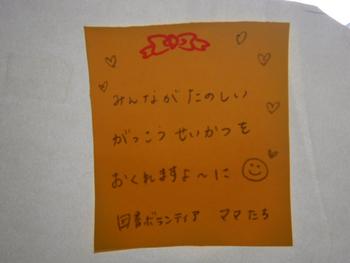 みんなが たのしい
がっこう せいかつを
おくれますよ〜に
図書ボランティア ママたち